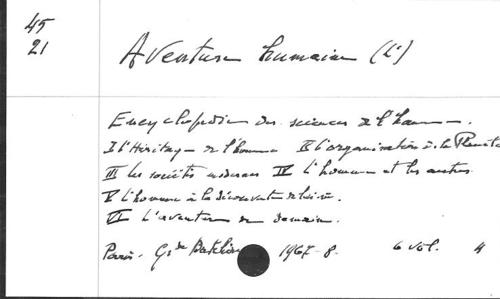 45
21
Aventure humaine (L')
Encyclopédie des sciences de l'homme.
I L'Héritage de l'homme II L'organisation de la Planète
III les sociétés modernes IV L'homme et les autres
V L'homme à la découverte de lui-même.
VI L'aventure de demain.
Paris. Gde Batelière 1967-8. 6 vol. 4